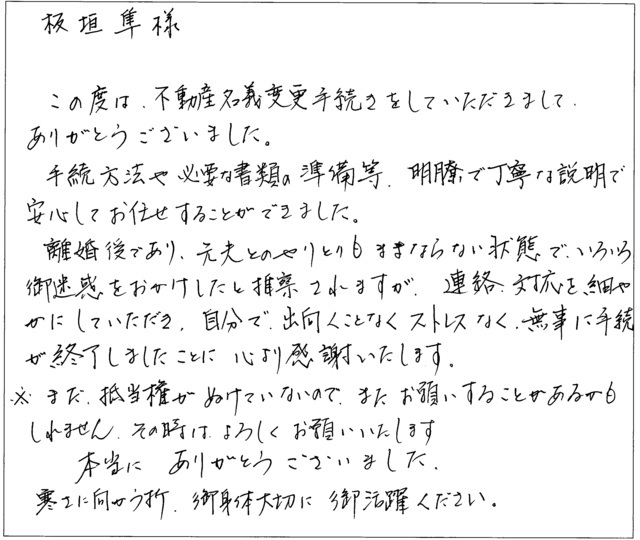 板垣隼様
この度は、不動産名義変更手続きをしていただきまして、
ありがとうございました。
手続方法や必要な書類の準備等、明瞭で丁寧な説明で
安心してお任せすることができました。
離婚後であり、元夫とのやりとりもままならない状態で、いろいろ
御迷惑をおかけしたと推察されますが、連絡、対応を細や
かにしていただき、自分で、出向くことなくストレスなく、無事に手続
が終了しましたことに心より感謝いたします。
※まだ、抵当権がぬけていないので、またお願いすることがあるかも
しれません、その時は、よろしくお願いいたします
本当に ありがとうございました、
寒さに向かう折、御身体大切に御活躍ください。